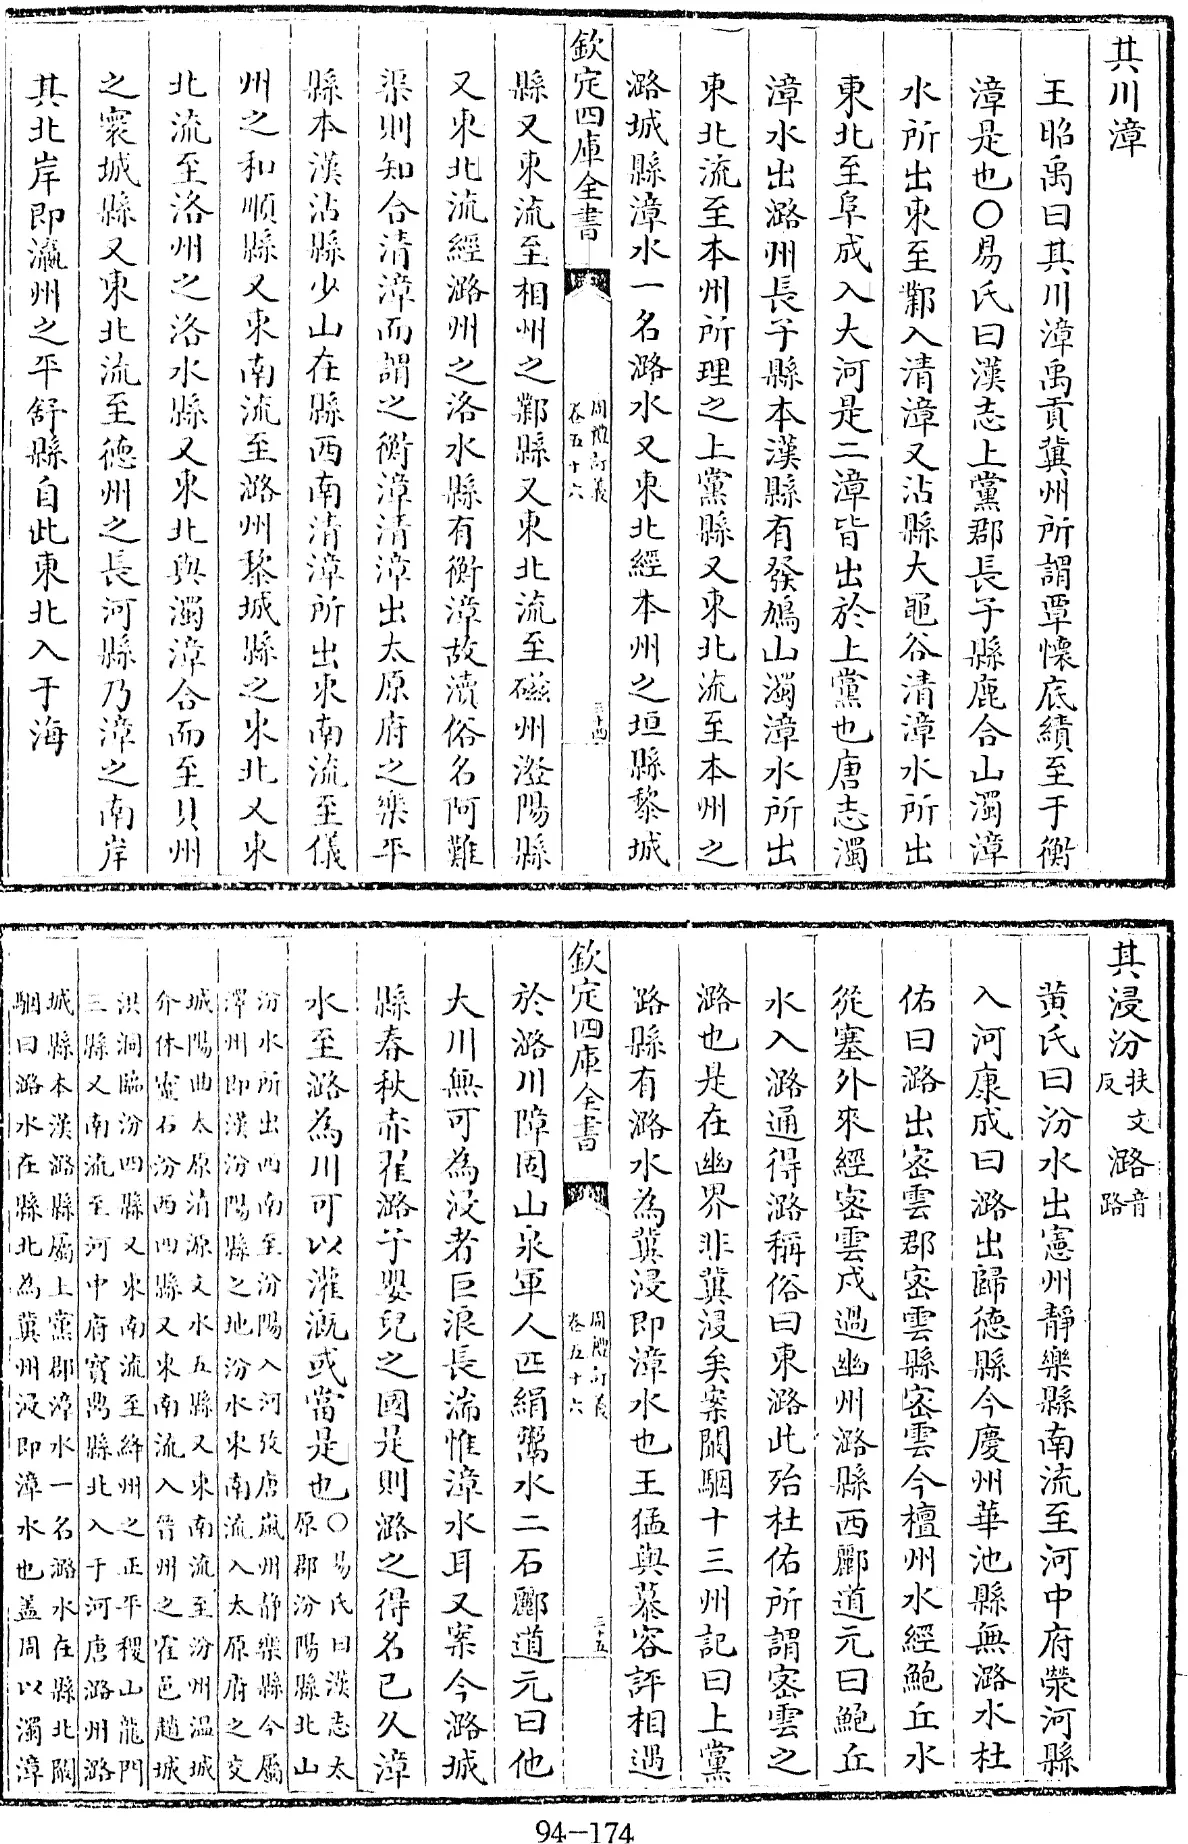 其川漳
王昭禹曰其川漳禹貢冀州所謂覃懷底績至于衡
漳是也〇易氏曰漢志上黨郡長子縣鹿合山濁漳
水所出東至鄴入清漳又沾縣大黽谷清漳水所出
東北至阜成入大河是二漳皆出於上黨也唐志濁
漳水出潞州長子縣本漢縣有發鳩山濁漳水所出
東北流至本州所理之上黨縣又東北流至本州之
潞城縣漳水一名潞水又東北經本州之垣縣黎城
欽定四庫全書
周禮訂義
卷五十六
三十四
縣又東流至相州之鄴縣又東北流至磁州滏陽縣
又東北流經潞州之洛水縣有衡漳故瀆俗名阿難
渠則知合清漳而謂之衡漳清漳出太原府之樂平
縣本漢沾縣少山在縣西南清漳所出東南流至儀
州之和順縣又東南流至潞州黎城縣之東北又東
北流至洛州之洛水縣又東北與濁漳合而至貝州
之寰城縣又東北流至德州之長河縣乃漳之南岸
其北岸即瀛州之平舒縣自此東北入于海
其浸汾扶文反潞音路
黄氏曰汾水出憲州靜樂縣南流至河中府滎河縣
入河康成曰潞出歸德縣今慶州華池縣無潞水杜
佑曰潞出密雲郡密雲縣密雲今檀州水經鮑丘水
從塞外來經密雲戍過幽州潞縣西酈道元曰鮑丘
水入潞通得潞稱俗曰東潞此殆杜佑所謂密雲之
潞也是在幽界非冀浸矣案闞駰十三州記曰上黨
路縣有潞水為冀浸即漳水也王猛與慕容評相遇
欽定四庫全書
周禮訂義
卷五十六
三十五
於潞川障固山泉軍人匹絹鬻水二石酈道元曰他
大川無可為浸者巨浪長湍惟漳水耳又案今潞城
縣春秋赤翟潞子嬰兒之國是則潞之得名已久漳
水至潞為川可以灌溉或當是也〇易氏曰漢志太
原郡汾陽縣北山
汾水所出西南至汾陽入河攷唐嵐州静樂縣今屬
澤州即漢汾陽縣之地汾水東南流入太原府之交
城陽曲太原清源文水五縣又東南流至汾州温城
介休靈石汾西四縣又東南流入晉州之霍邑趙城
洪洞臨汾四縣又東南流至絳州之正平稷山龍門
三縣又南流至河中府寳鼎縣北入于河唐潞州潞
城縣本漢潞縣屬上黨郡漳水一名潞水在縣北闞
駰曰潞水在縣北為冀州浸即漳水也盖周以濁漳
94-174